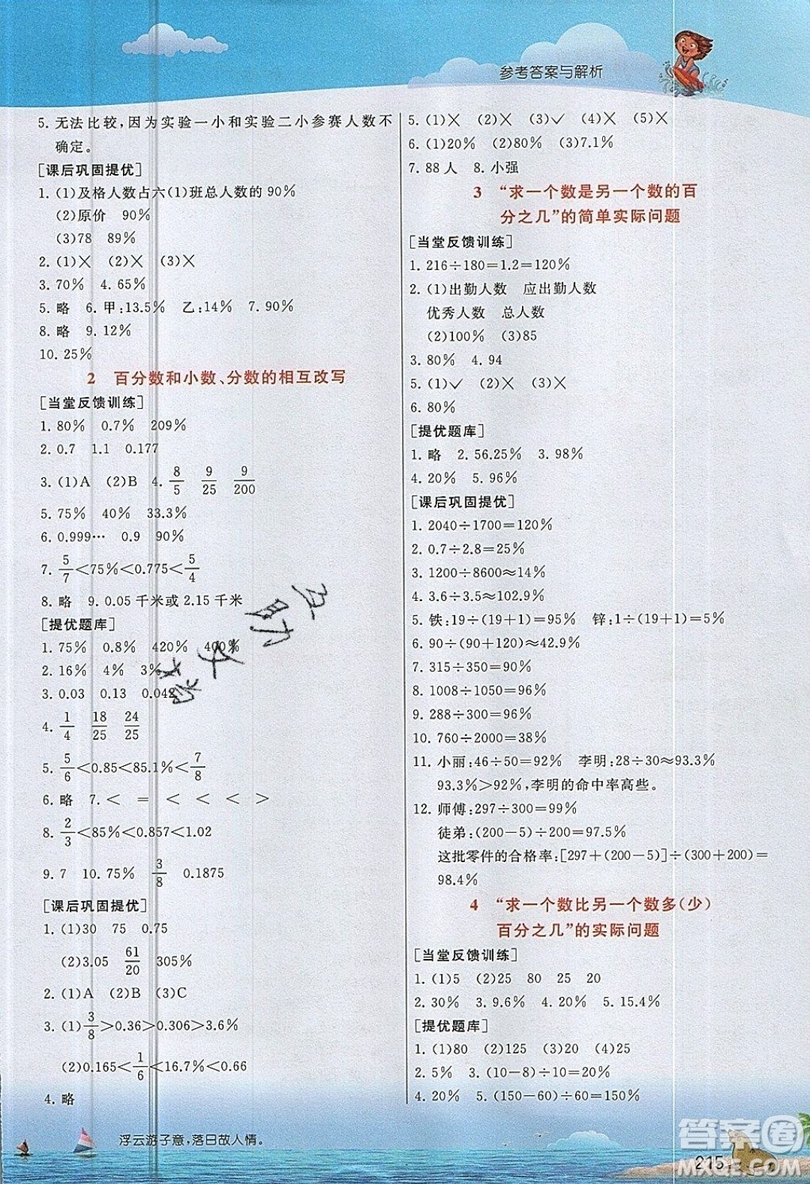 参考答案与解析
5. 无法比较,因为实验一小和实验二小参赛人数不
确定。
[课后巩固提优]
1. (1)及格人数占六(1)班总人数的 90%
(2)原价 90%
(3)78 89%
2. (1)× (2)× (3)×
3. 70% 4. 65%
5. 略 6. 甲:13.5% 乙:14% 7. 90%
8. 略 9. 12%
10. 25%
2 百分数和小数、分数的相互改写
[当堂反馈训练]
1. 80% 0.7% 209%
2. 0.7 1.1 0.177
3. (1)A (2)B 4. 8/5 9/25 9/200
5. 75% 40% 33.3%
6. 0.999… 0.9 90%
7. 5/7<75%<0.775<5/4
8. 略 9. 0.05 千米或 2.15 千米
[提优题库]
1. 75% 0.8% 420% 400%
2. 16% 4% 3%
3. 0.03 0.13 0.042
4. 1/4 18/25 24/25
5. 5/6<0.85<85.1%<7/8
6. 略 7. < = < < < >
8. 2/3<85%<0.857<1.02
9. 7 10. 75% 3/8 0.1875
[课后巩固提优]
1. (1)30 75 0.75
(2)3.05 61/20 305
2. (1)A (2)B (3)C
3. (1)3/8>0.36>0.306>3.6%
(2)0.165<1/6<16.7%<0.66
4. 略
5. (1)× (2)× (3)✓ (4)× (5)×
6. (1)20% (2)80% (3)7.1%
7. 88 人 8. 小强
3 “求一个数是另一个数的百
分之几”的简单实际问题
[当堂反馈训练]
1. 216÷180=1.2=120%
2. (1)出勤人数 应出勤人数
优秀人数 总人数
(2)100% (3)85
3. 80% 4. 94
5. (1)✓ (2)× (3)✓
6. 80%
[提优题库]
1. 略 2. 56.25% 3. 62.5%
4. 20% 5. 96%
[课后巩固提优]
1. 2040÷1700=120%
2. 0.7÷2.8=25%
3. 1200÷8600≈14%
4. 3.6÷3.5≈102.9%
5. 铁:19÷(19+1)=95% 锌:1÷(19+1)=5%
6. 90÷(90+120)≈42.9%
7. 315÷350=90%
8. 1008÷1050=96%
9. 288÷300=96%
10. 760÷2000=38%
11. 小丽:46÷50=92% 李明:28÷30≈93.3%
93.3%>92%,李明的命中率高些。
12. 师傅:297÷300=99%
徒弟:(200-5)÷200=97.5%
这批零件的合格率:[297+(200-5)]÷(300+200)=
98.4%
4 “求一个数比另一个数多(少)
百分之几”的实际问题
[当堂反馈训练]
1. (1)5 (2)25 80 25 20
2. 30% 3. 9.6% 4. 20% 5. 15.4%
[提优题库]
1. (1)80 (2)125 (3)20 (4)25
2. 5% 3. (10-8)÷10=20%
4. 20% 5. (150-60)÷60=150%
浮云游子意,落日故人情。
215
答案圈
MXQE.COM